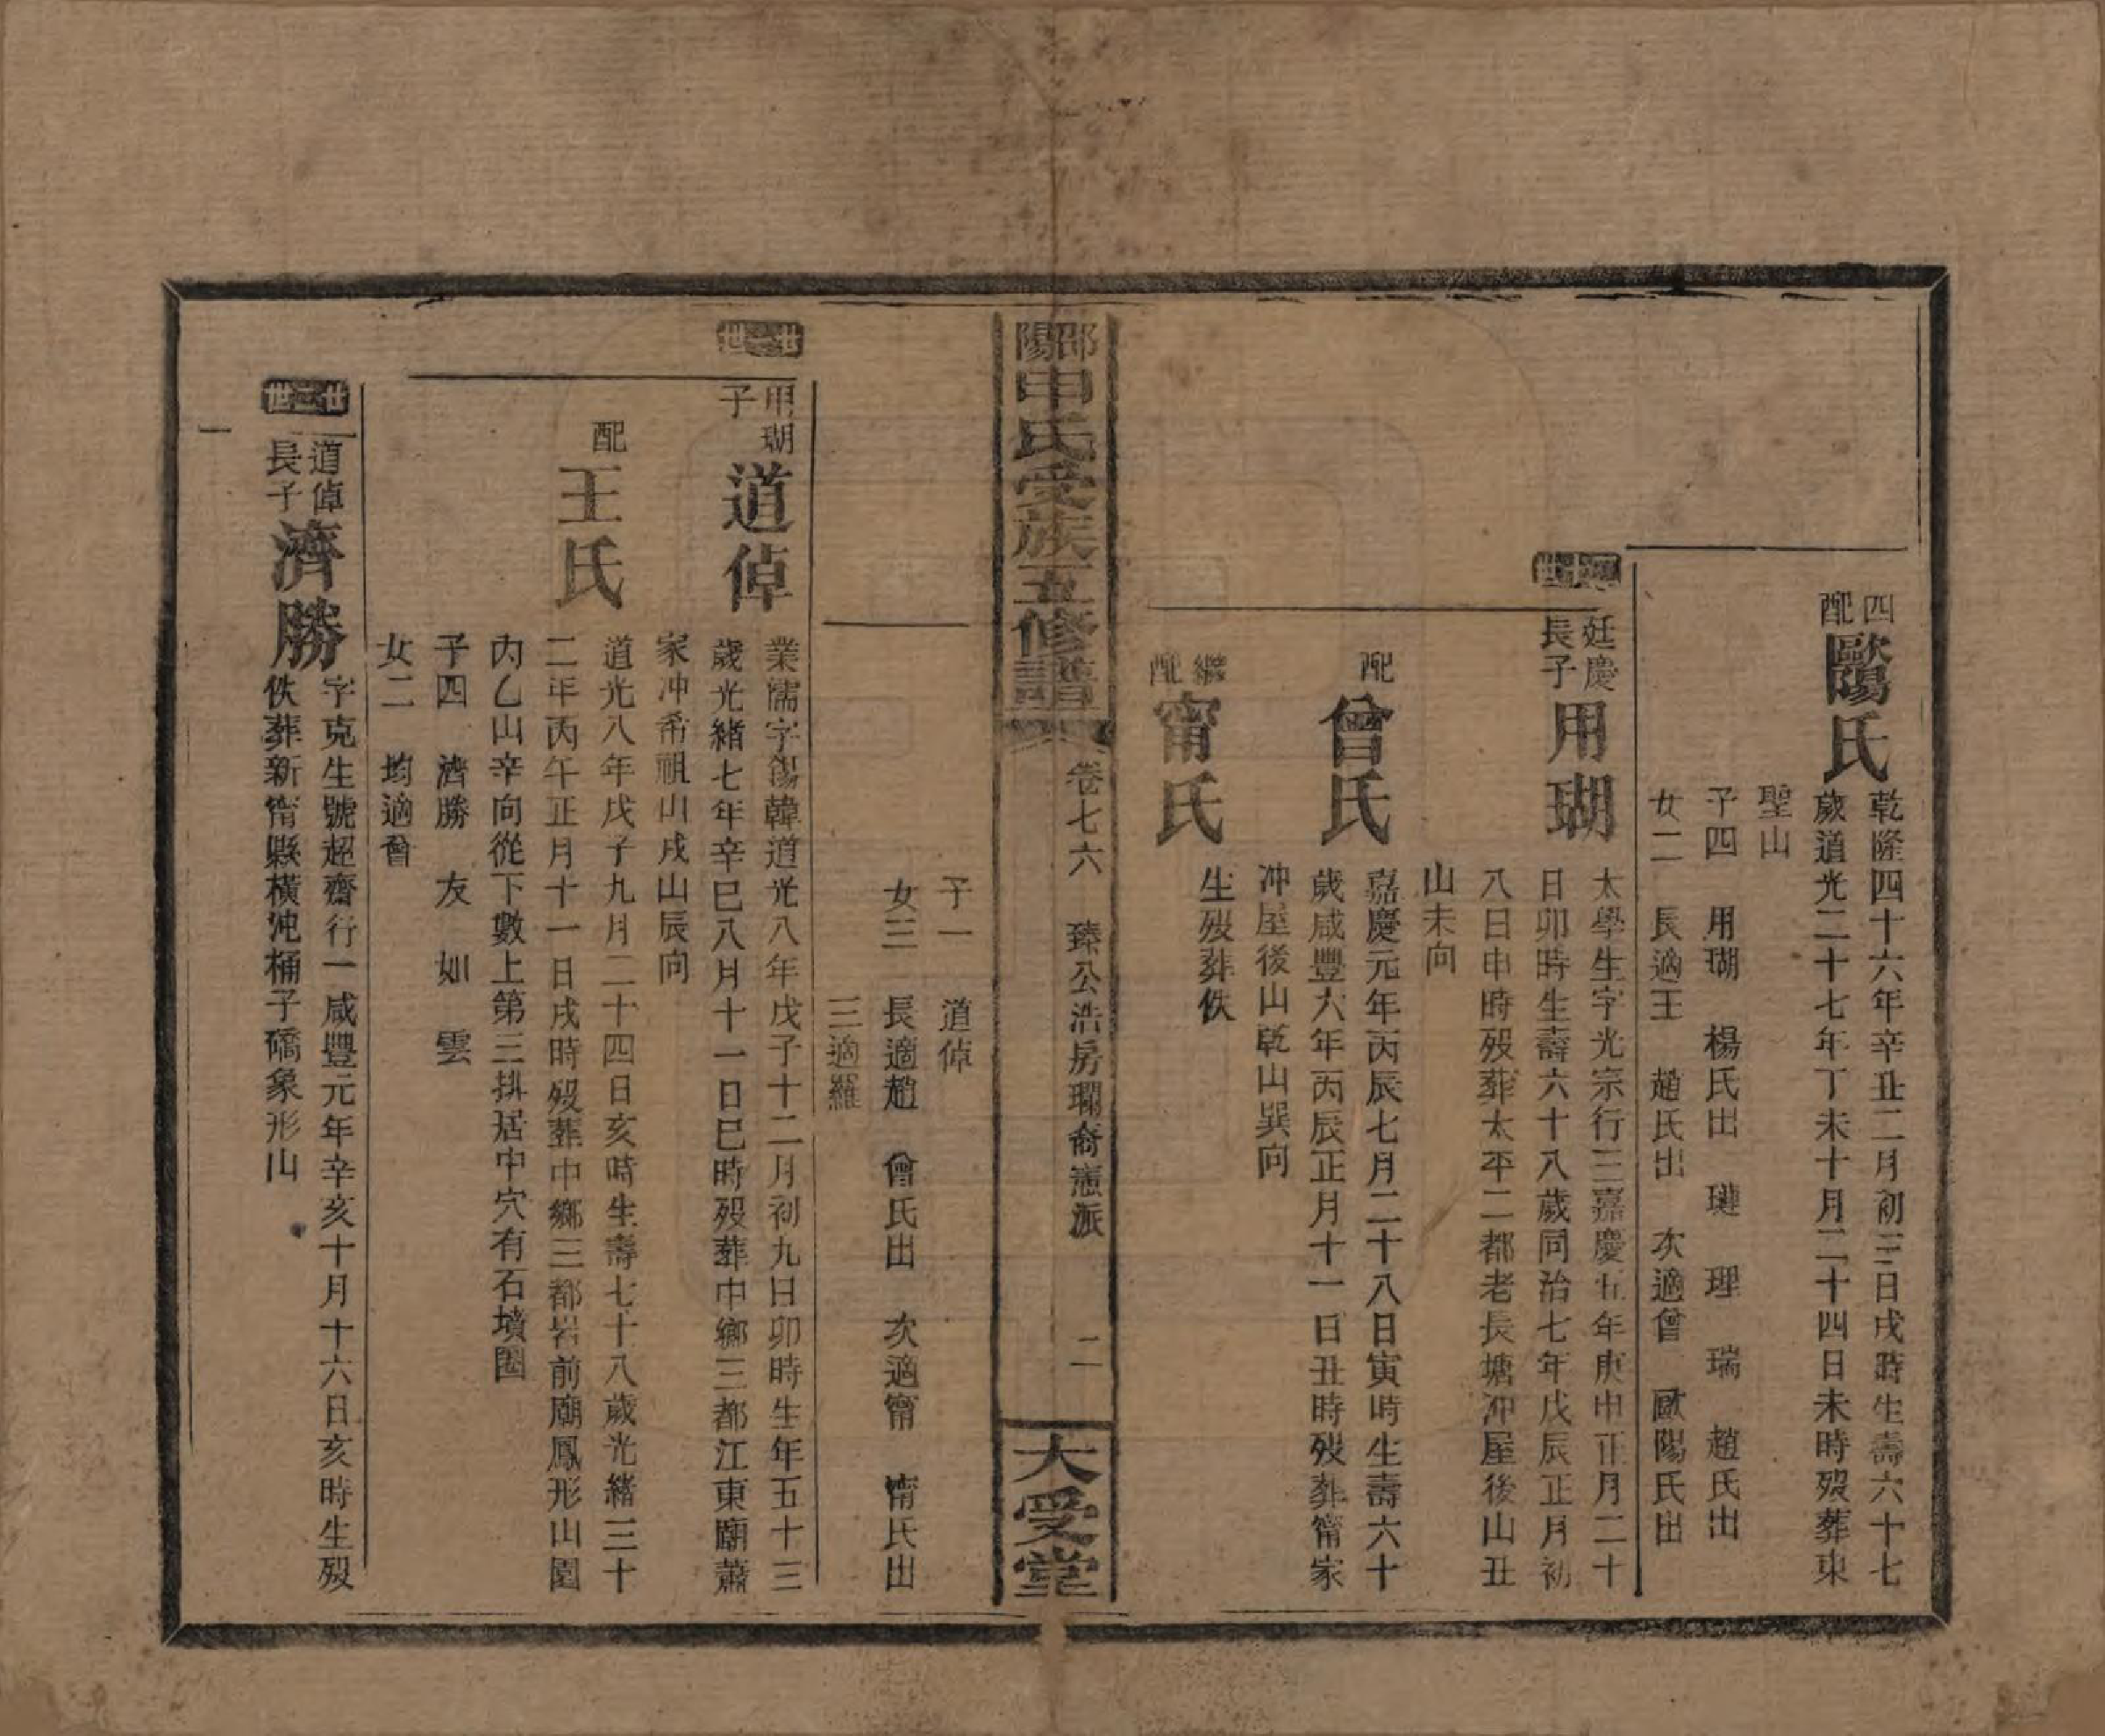 四配歐陽氏
乾隆四十六年辛丑二月初三日戌時生壽六十七
歲道光二十七年丁未十月二十四日未時歿葬東
聖山
子四　用瑚　楊氏出　璉　理　瑞　趙氏出
女二　長適王　趙氏出　次適曾　歐陽氏出
廷慶長子用瑚
太學生字光宗行三嘉慶五年庚申正月二十
日卯時生壽六十八歲同治七年戊辰正月初
八日申時歿葬太平二都老長塘沖屋後山丑
山未向
配曾氏
嘉慶元年丙辰七月二十八日寅時生壽六十
歲咸豐六年丙辰正月十一日丑時歿葬甯家
沖屋後山乾山巽向
繼配甯氏
生歿葬佚
邵陽申氏受族五修譜
卷七六　臻公浩房瓓裔憲派　二
大受堂
子一　道倬
女三　長適趙　曾氏出　次適甯　甯氏出
三適羅
廿二世
用瑚子道倬
業儒字錫韓道光八年戊子十二月初九日卯時生年五十三
歲光緒七年辛巳八月十一日巳時歿葬中鄉三都江東廟蕭
家沖希祖山戌山辰向
配王氏
道光八年戊子九月二十四日亥時生壽七十八歲光緒三十
二年丙午正月十一日戌時歿葬中鄉三都岩前廟鳳形山園
內乙山辛向從下數上第三排居中穴有石墳圈
子四　濟勝　友　如　雲
女二　均適曾
廿三世
道倬長子濟勝
字克生號超齊行一咸豐元年辛亥十月十六日亥時生歿
佚葬新甯縣橫沖桶子礄象形山